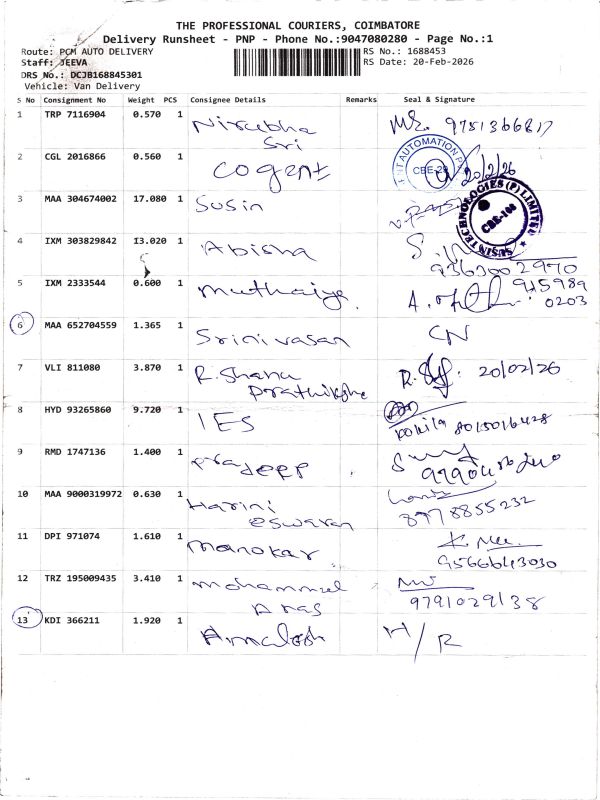 THE PROFESSIONAL COURIERS, COIMBATORE
Delivery Runsheet - PNP - Phone No.:9047080280 - Page No.:1
Route: PCM AUTO DELIVERY
RS No.: 1688453
Staff: JEEVA
RS Date: 20-Feb-2026
DRS No.: DCJB168845301
Vehicle: Van Delivery
S No Consignment No Weight PCS Consignee Details Remarks Seal & Signature
1 TRP 7116904 0.570 1 Nirubha
Sri
2 CGL 2016866 0.560 1 Cogent 20/2/26
IT AUTOMATION
3 MAA 304674002 17.080 1 Susin
SUSIN TECHNOLOGIES (P) LIMITED
4 IXM 303829842 13.020 1 Abisha
9363002970
5 IXM 2333544 0.600 1 Muthaiya
915989
0203
6 MAA 652704559 1.365 1 Srinivasan CN
7 VLI 811080 3.870 1 R. Shana 20/02/26
Prathiksha
8 HYD 93265860 9.720 1 IES
Kokila 8015016428
9 RMD 1747136 1.400 1 Pradeep
10 MAA 9000319972 0.630 1 Harini
eswaran 8978855232
11 DPI 971074 1.610 1 Manokar
9566643030
12 TRZ 195009435 3.410 1 Mohammed
Anas 9791029138
13 KDI 366211 1.920 1 Amalesh H/R